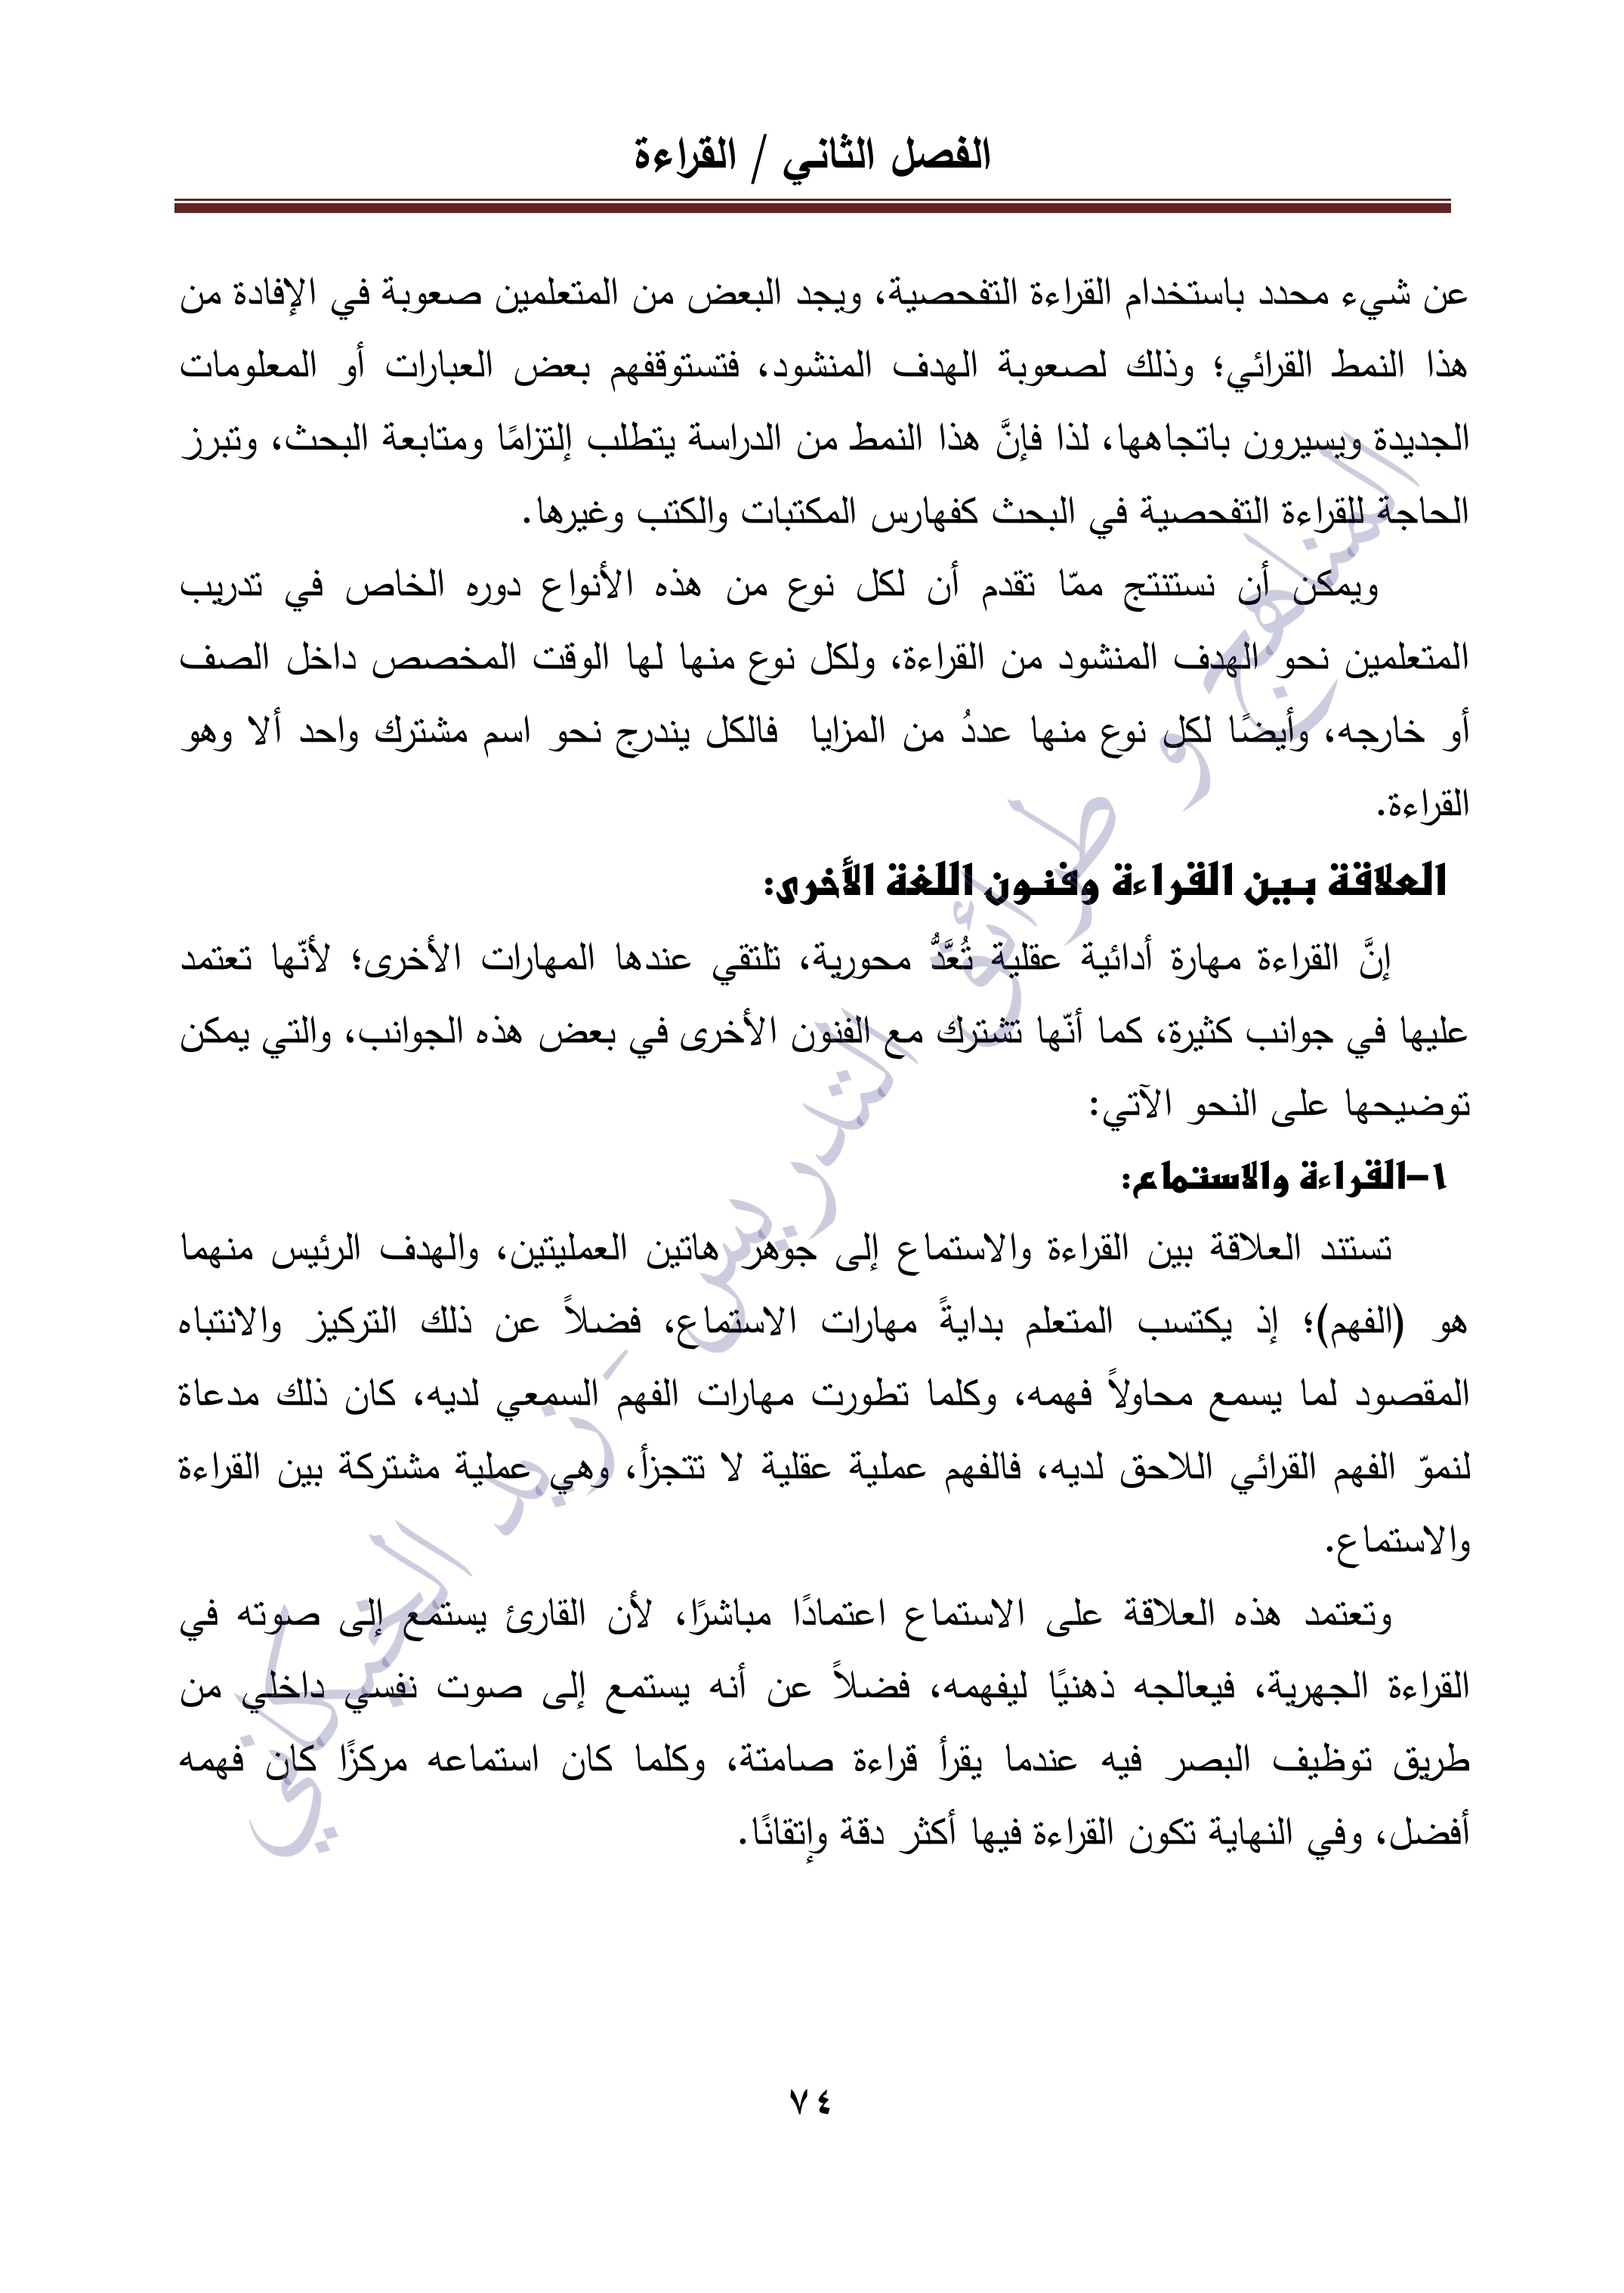 الفصل الثاني / القراءة
عن شيء محدد باستخدام القراءة التفحصية، ويجد البعض من المتعلمين صعوبة في الإفادة من
هذا النمط القرائي؛ وذلك لصعوبة الهدف المنشود، فتستوقفهم بعض العبارات أو المعلومات
الجديدة ويسيرون باتجاهها، لذا فإنَّ هذا النمط من الدراسة يتطلب إلتزامًا ومتابعة البحث، وتبرز
الحاجة للقراءة التفحصية في البحث كفهارس المكتبات والكتب وغيرها.
ويمكن أن نستنتج ممّا تقدم أن لكل نوع من هذه الأنواع دوره الخاص في تدريب
المتعلمين نحو الهدف المنشود من القراءة، ولكل نوع منها لها الوقت المخصص داخل الصف
أو خارجه، وأيضًا لكل نوع منها عددُ من المزايا فالكل يندرج نحو اسم مشترك واحد ألا وهو
القراءة.
العلاقة بين القراءة وفنون اللغة الأخرى:
إنَّ القراءة مهارة أدائية عقلية تُعَّدُّ محورية، تلتقي عندها المهارات الأخرى؛ لأنّها تعتمد
عليها في جوانب كثيرة، كما أنّها تشترك مع الفنون الأخرى في بعض هذه الجوانب، والتي يمكن
توضيحها على النحو الآتي:
١-القراءة والاستماع:
تستند العلاقة بين القراءة والاستماع إلى جوهر هاتين العمليتين، والهدف الرئيس منهما
هو (الفهم)؛ إذ يكتسب المتعلم بدايةً مهارات الاستماع، فضلاً عن ذلك التركيز والانتباه
المقصود لما يسمع محاولاً فهمه، وكلما تطورت مهارات الفهم السمعي لديه، كان ذلك مدعاة
لنموّ الفهم القرائي اللاحق لديه، فالفهم عملية عقلية لا تتجزأ، وهي عملية مشتركة بين القراءة
والاستماع.
وتعتمد هذه العلاقة على الاستماع اعتمادًا مباشرًا، لأن القارئ يستمع إلى صوته في
القراءة الجهرية، فيعالجه ذهنيًا ليفهمه، فضلاً عن أنه يستمع إلى صوت نفسي داخلي من
طريق توظيف البصر فيه عندما يقرأ قراءة صامتة، وكلما كان استماعه مركزًا كان فهمه
أفضل، وفي النهاية تكون القراءة فيها أكثر دقة وإتقانًا.
المناهج و طرائق التدريس - زيد الخيكاني
٧٤